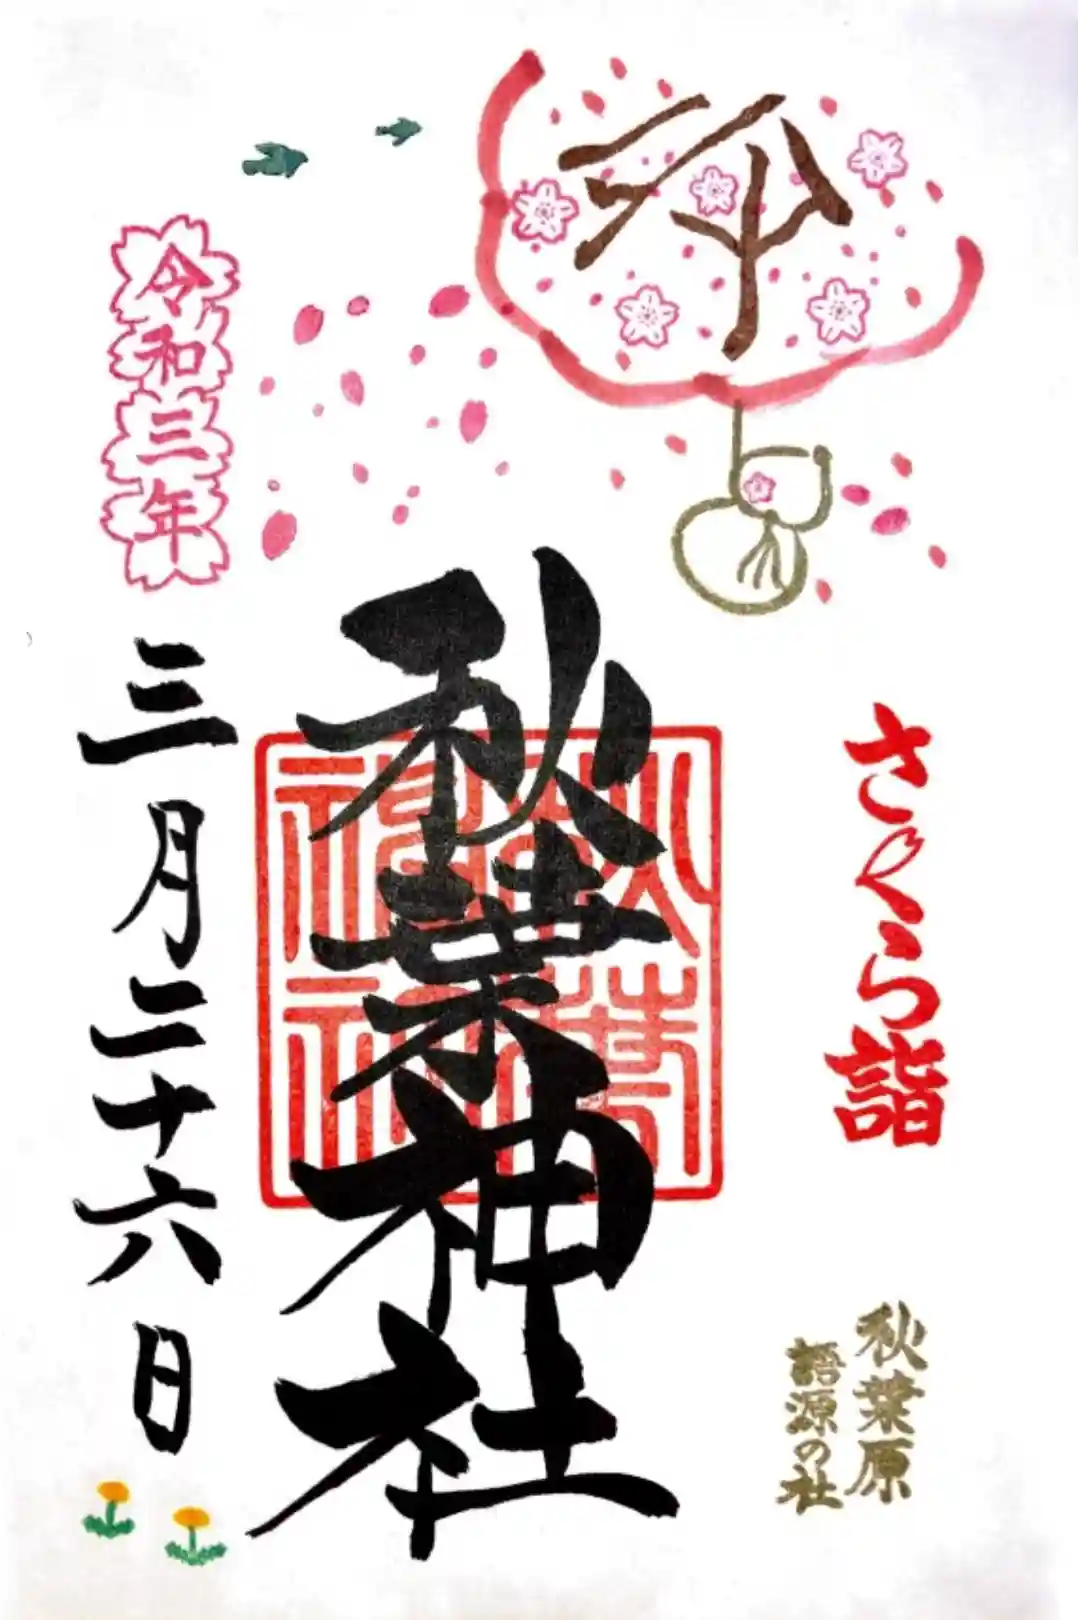 奉拝
さくら詣
秋葉原
語源の社
秋葉神社
令和三年
三月二十六日